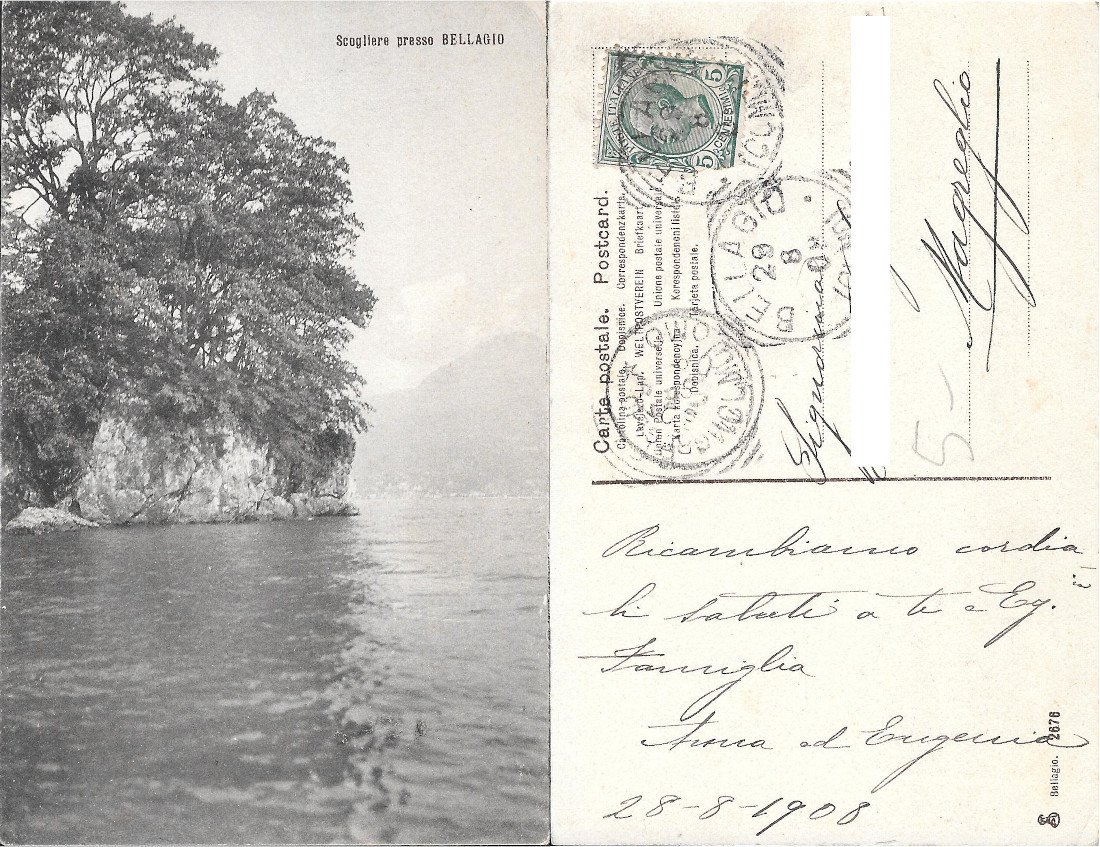 Scogliere presso BELLAGIO
POSTE ITALIANE
CENTESIMI 5
5
Carte postale. Postcard.
Cartolina postale. Dopisnice. Correspondenzkarte.
Levelezö-Lap. WELTPOSTVEREIN Briefkaart
Union Postale universelle. Unione postale universale
Karta korespondencyjna. Korespondencni listek.
Dopisnica. Tarjeta postale.
BELLAGIO
29
8
Signorina
Magreglio
5-
Ricambiamo cordia
li saluti a te e Eg.
Famiglia
Anna ed Eugenia
28-8-1908
Bellagio. 2676